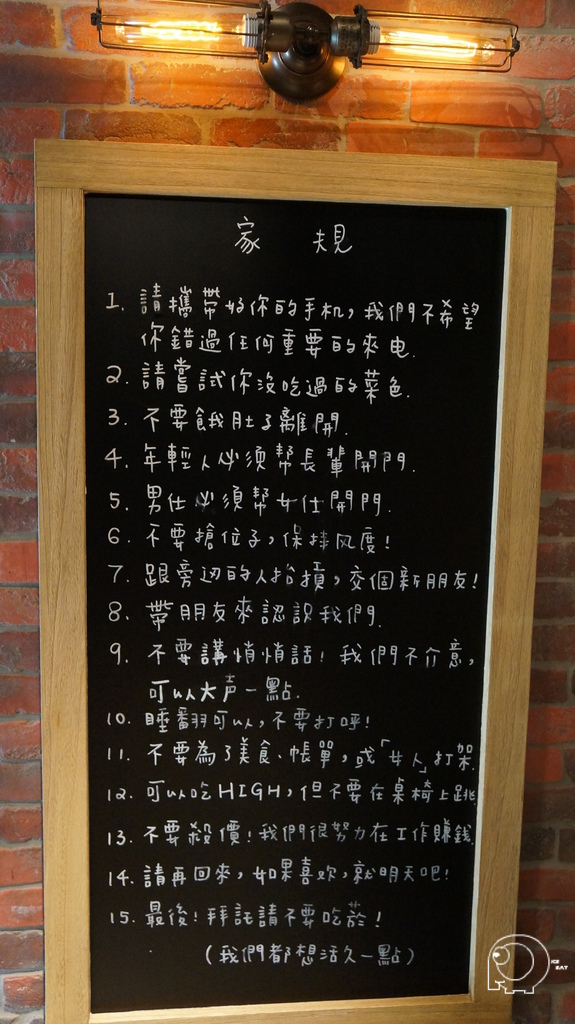 家 規
1. 請攜帶好你的手机，我們不希望
你錯過任何重要的來电.
2. 請嘗試你沒吃過的菜色.
3. 不要餓肚子離開.
4. 年輕人必須帮長輩開門.
5. 男仕必須帮女仕開門.
6. 不要搶位子，保持风度!
7. 跟旁边的人抬摃，交個新朋友!
8. 帶朋友來認識我們.
9. 不要講悄悄話! 我們不介意，
可以大声一點.
10. 睡翻可以，不要打呼!
11. 不要為了美食、帳單，或「女人」打架.
12. 可以吃HIGH，但不要在桌椅上跳
13. 不要殺價! 我們很努力在工作賺錢.
14. 請再回來，如果喜欢，就明天吧!
15. 最後! 拜託請不要吃菸!
(我們都想活久一點)
ICE
EAT